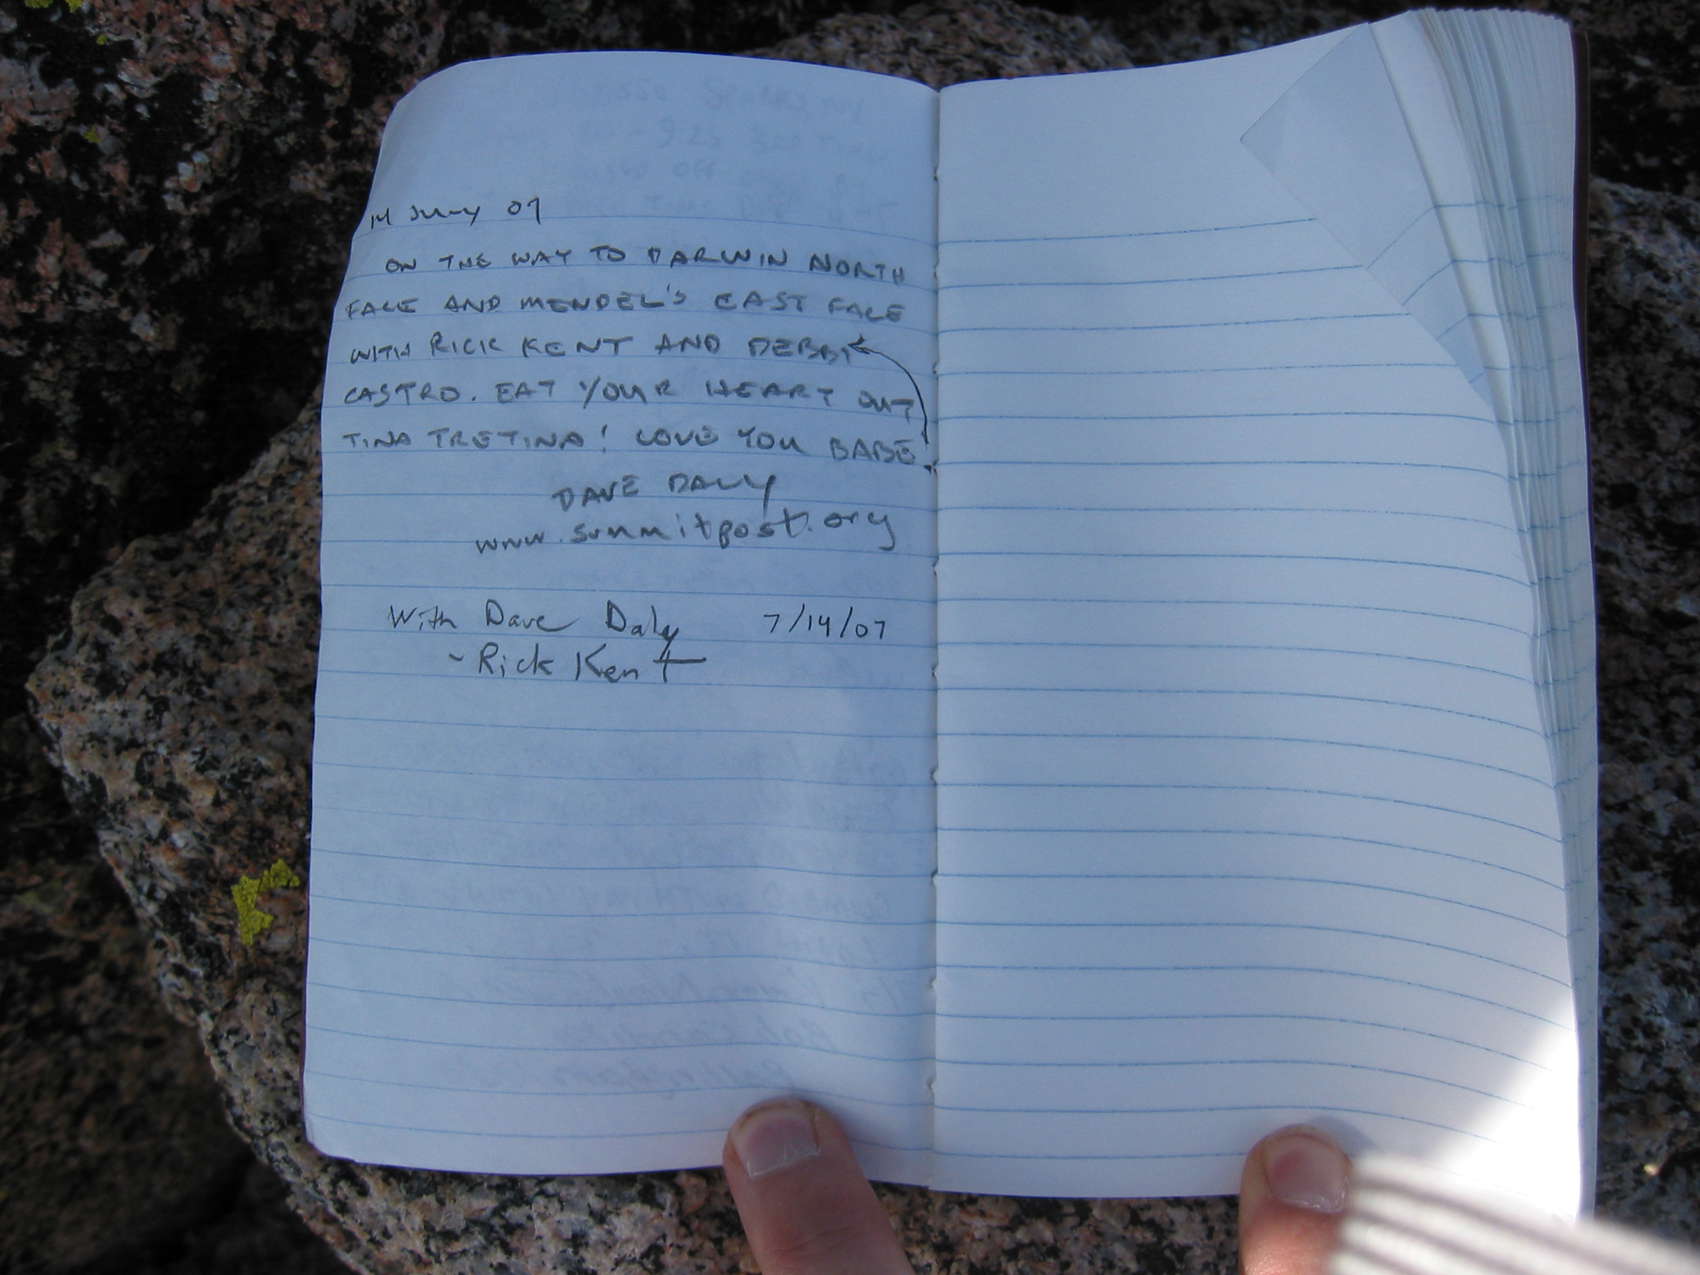 14 July 07
ON THE WAY TO DARWIN NORTH
FACE AND MENDEL'S EAST FACE
WITH RICK KENT AND DEBBI
CASTRO. EAT YOUR HEART OUT
TINA TRETINA! LOVE YOU BABE.
DAVE DALY
www.summitpost.org
With Dave Daly 7/14/07
- Rick Kent